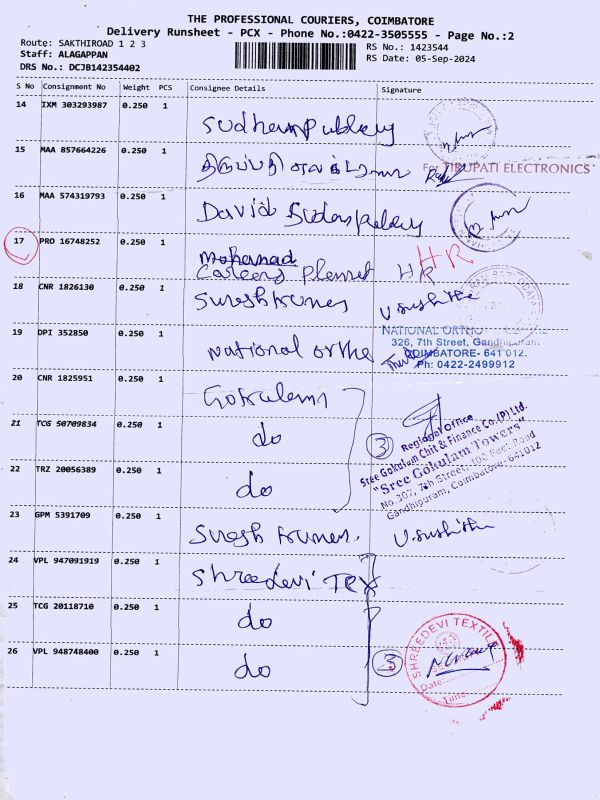 THE PROFESSIONAL COURIERS, COIMBATORE
Delivery Runsheet - PCX - Phone No.:0422-3505555 - Page No.:2
Route: SAKTHIROAD 1 2 3
Staff: ALAGAPPAN
DRS No.: DCJB142354402
RS No.: 1423544
RS Date: 05-Sep-2024
S No Consignment No Weight PCS Consignee Details Signature
14 IXM 303293987 0.250 1
15 MAA 857664226 0.250 1 திருப்பதி
For TIRUPATI ELECTRONICS
16 MAA 574319793 0.250 1 David
17 PRO 16748252 0.250 1 Mohamad HR
Careers Planet HR
18 CNR 1826130 0.250 1 Sureshkumar U. Sushitha
19 DPI 352850 0.250 1 National Ortho
NATIONAL ORTHO
326, 7th Street, Gandhipuram,
COIMBATORE- 641 012.
Ph: 0422-2499912
20 CNR 1825951 0.250 1 Gokulam
21 TCG 50709834 0.250 1 do 3
22 TRZ 20056389 0.250 1 do
Regional Office
Sree Gokulam Chit & Finance Co.(P) Ltd.
"Sree Gokulam Towers"
No.307, 7th Street, 100 Feet Road
Gandhipuram, Coimbatore-641012
23 GPM 5391709 0.250 1 Suresh Kumar. U. Sushitha
24 VPL 947091919 0.250 1 Shreedevi TEX
25 TCG 20118710 0.250 1 do
26 VPL 948748400 0.250 1 do 3
SHREEDEVI TEXTILE
Date
Time